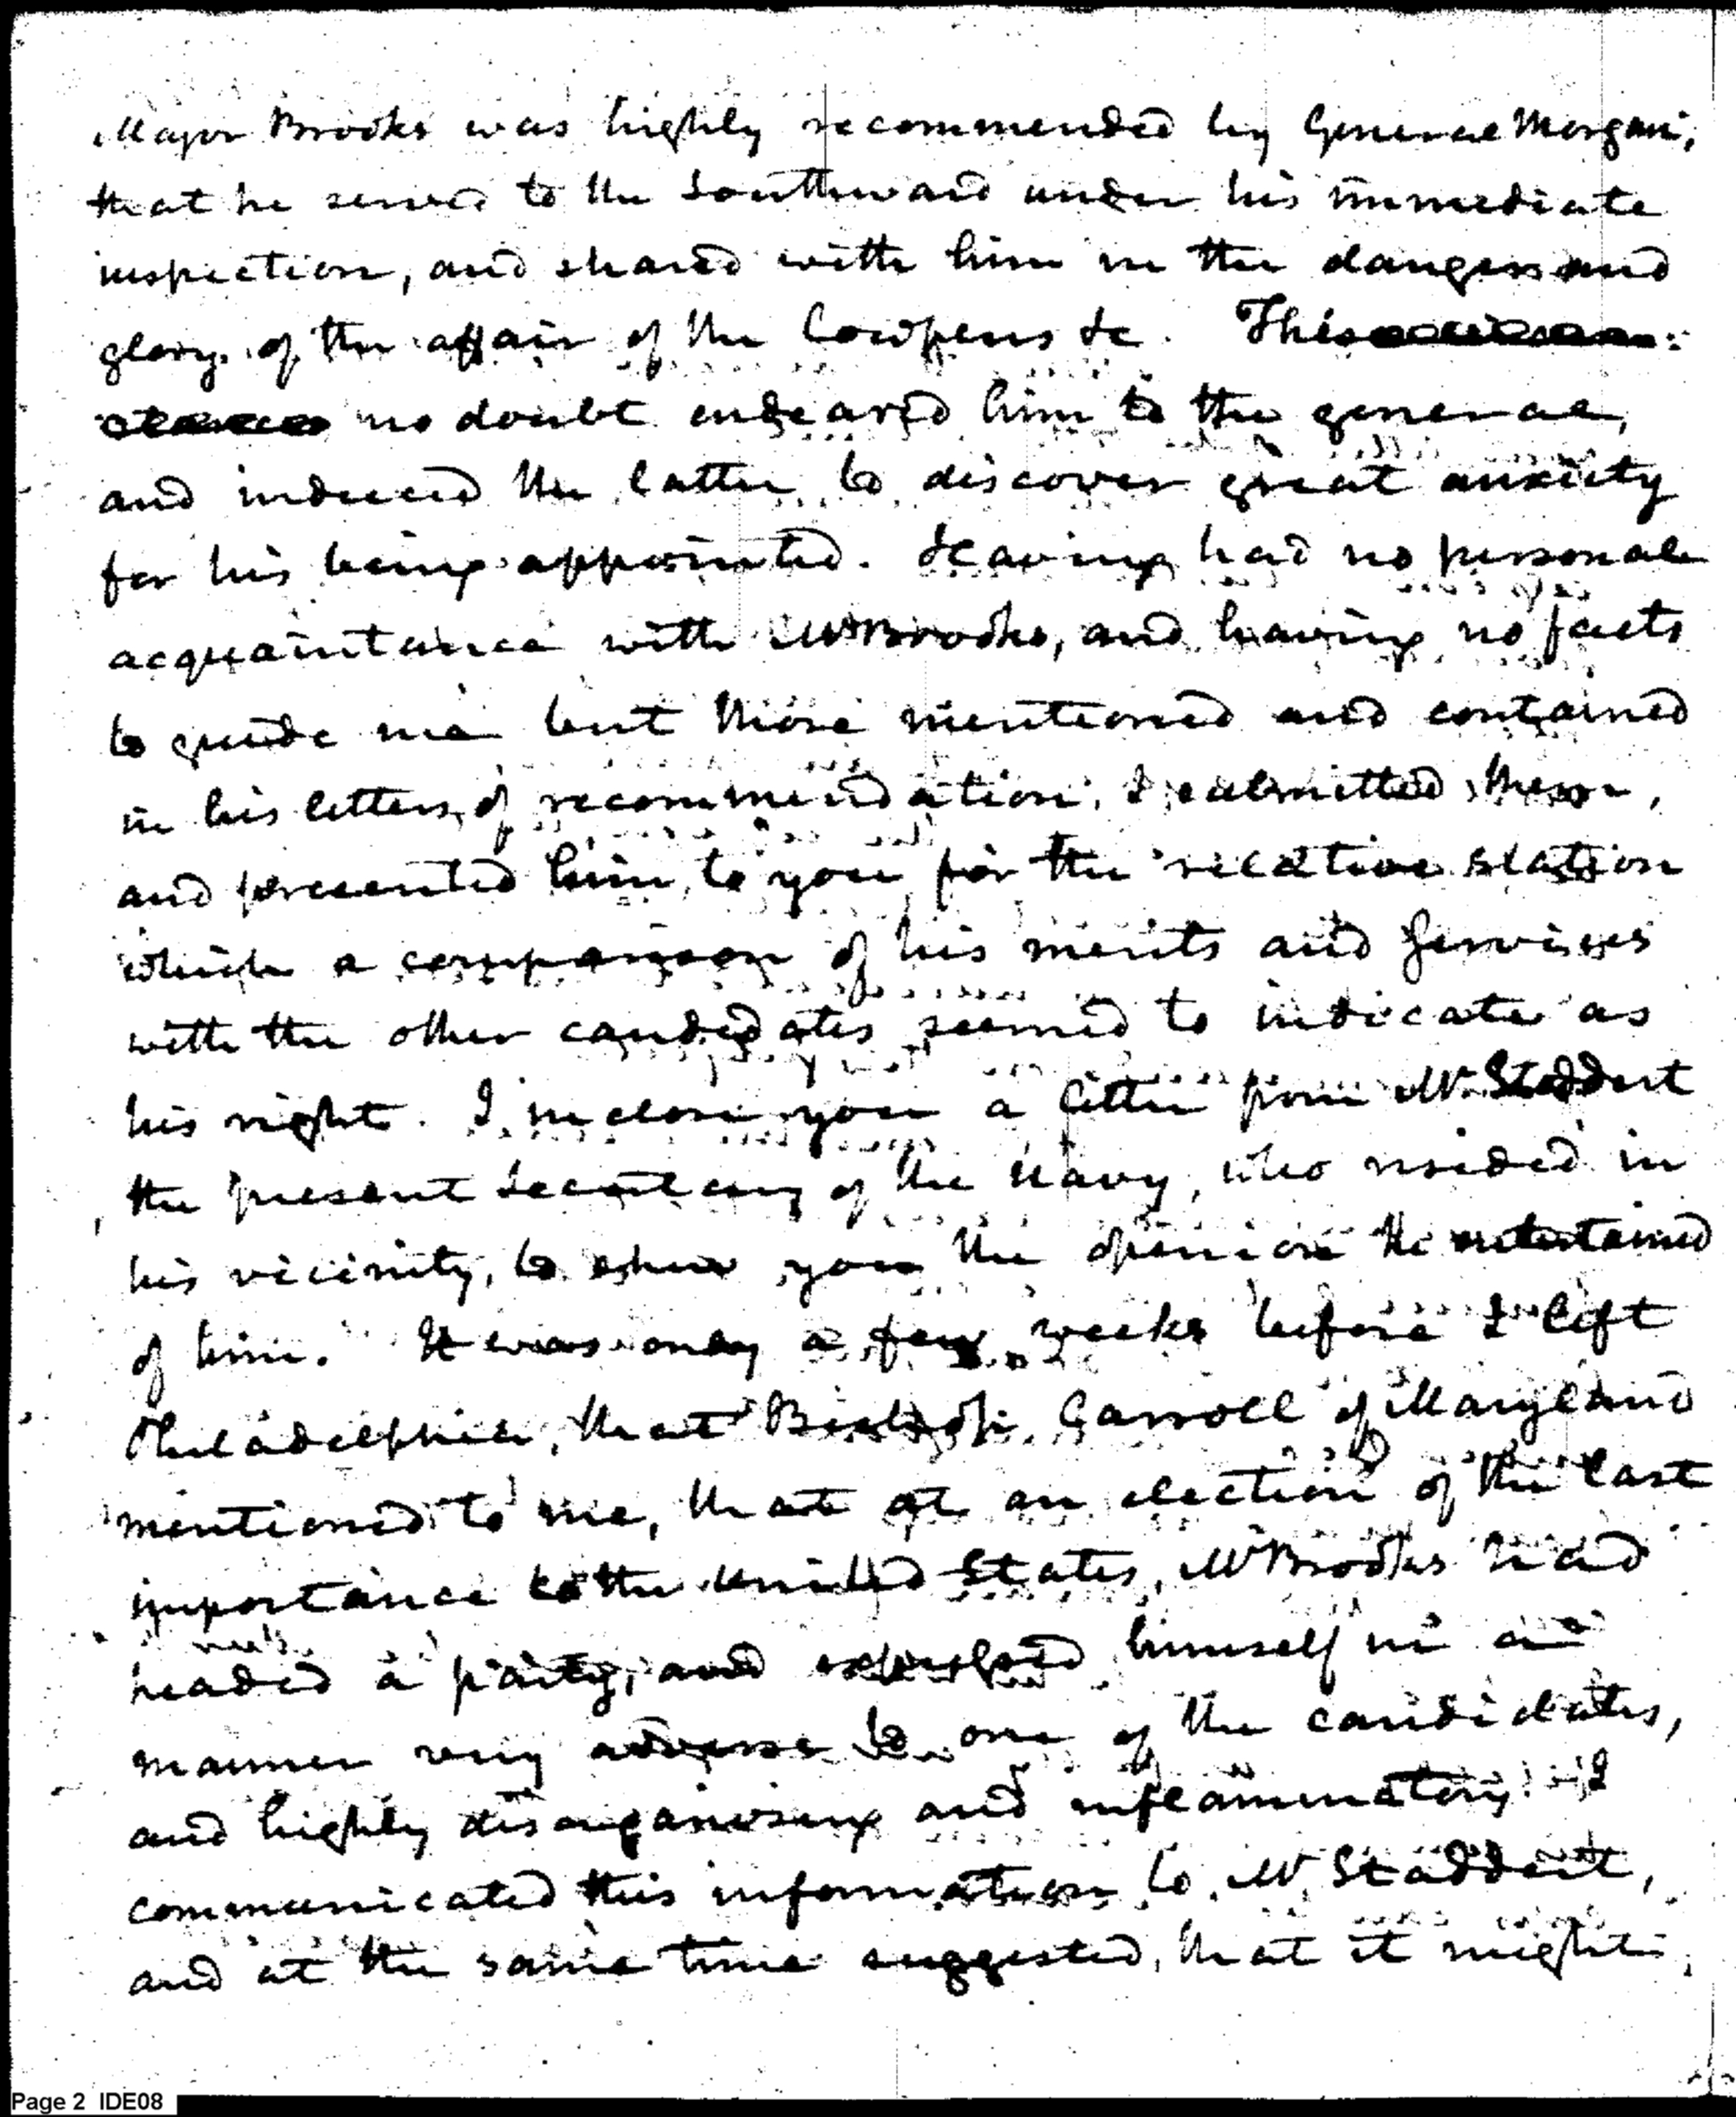 Major Brooks was highly recommended by General Morgan;
that he served to the Southward under his immediate
inspection, and shared with him in the dangers and
glory of the affair of the Cowpens &c. This
no doubt endeared him to the general,
and induced the latter to discover great anxiety
for his being appointed. Having had no personal
acquaintance with Mr Brooks, and having no facts
to guide me but those mentioned and contained
in his letters of recommendation, I submitted them,
and presented him to you for the relative station
which a comparison of his merits and services
with the other candidates seemed to indicate as
his right. I inclose you a letter from Mr. Stoddert
the present Secretary of the Navy, who resided in
his vicinity, to shew you the opinion he entertained
of him. It was only a few weeks before I left
Philadelphia, that Bishop Carroll of Maryland
mentioned to me, that at an election of the last
importance to the United States, Mr Brooks had
headed a party, and expressed himself in a
manner very adverse to one of the candidates,
and highly disorganising and inflammatory. I
communicated this information to Mr. Stoddert,
and at the same time suggested, that it might
Page 2 IDE08